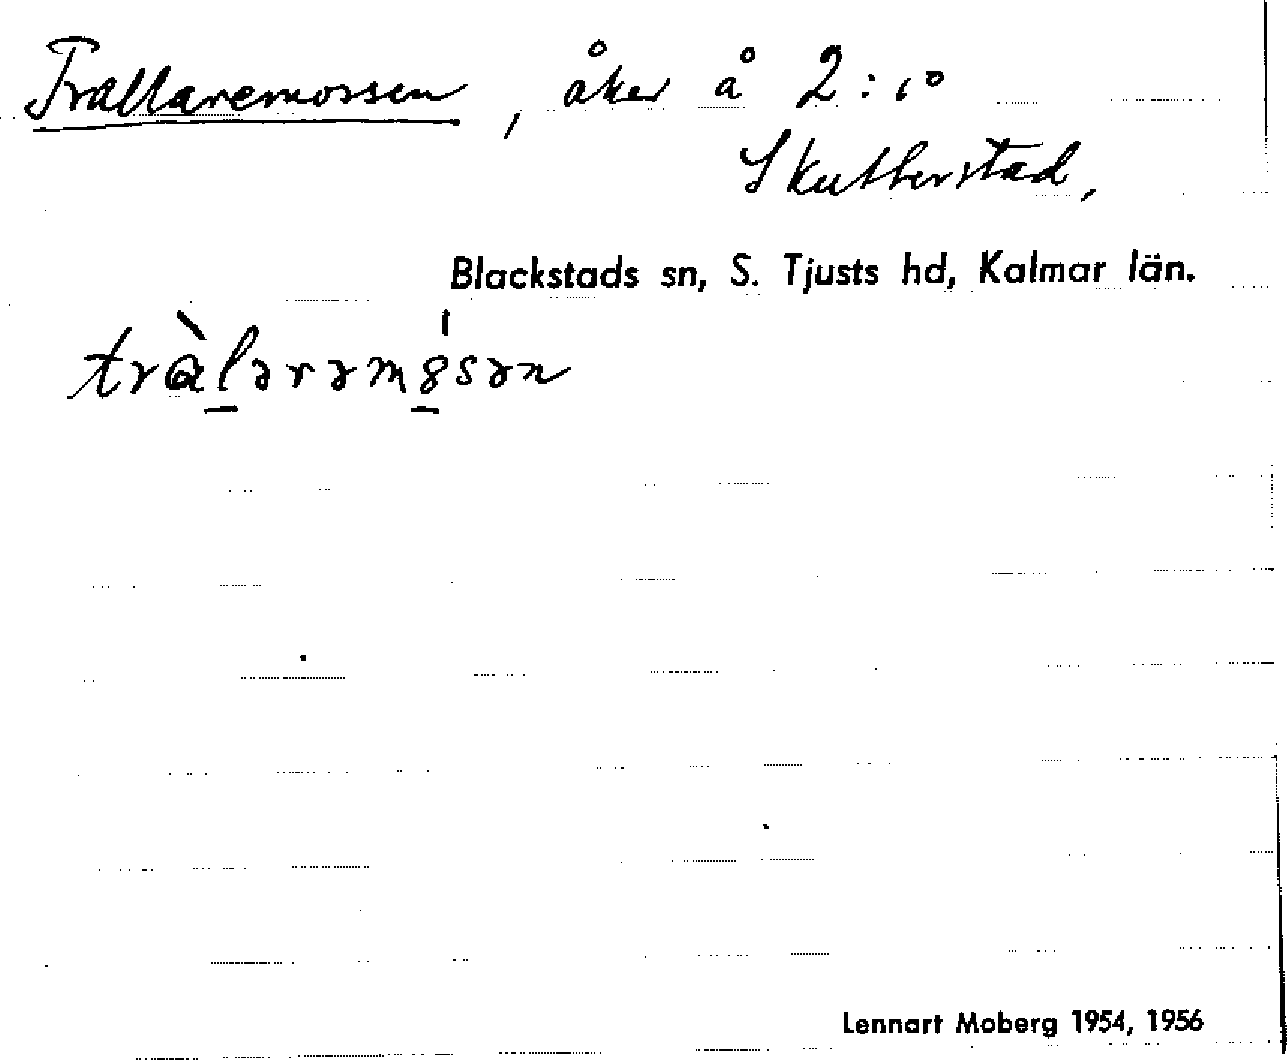 Trallaremossen, åker å 2:10
Skutherstad,
Blackstads sn, S. Tjusts hd, Kalmar län.
Lennart Moberg 1954, 1956